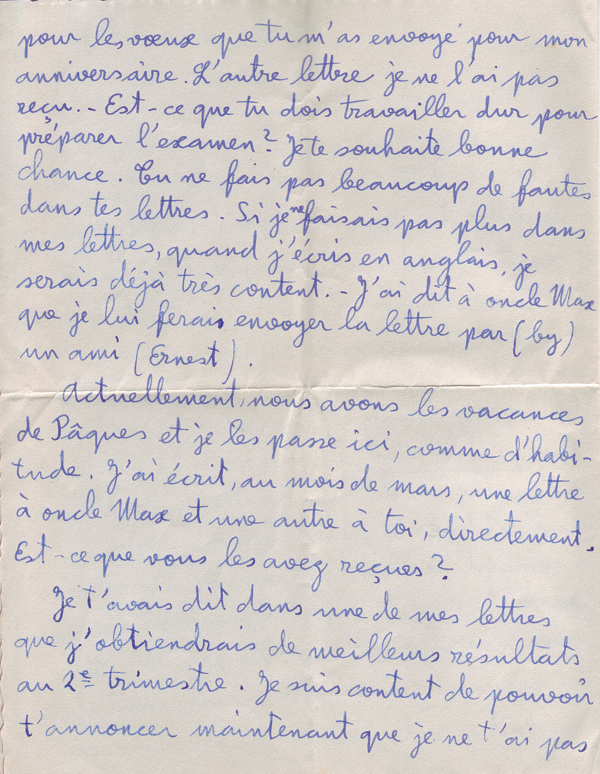 pour les vœux que tu m'as envoyé pour mon
anniversaire. L'autre lettre je ne l'ai pas
reçu. - Est-ce que tu dois travailler dur pour
préparer l'examen? Je te souhaite bonne
chance. Tu ne fais pas beaucoup de fautes
dans tes lettres. Si je ne faisais pas plus dans
mes lettres, quand j'écris en anglais, je
serais déjà très content. - J'ai dit à oncle Max
que je lui ferais envoyer la lettre par (by)
un ami (Ernest).
Actuellement, nous avons les vacances
de Pâques et je les passe ici, comme d'habi-
tude. J'ai écrit, au mois de mars, une lettre
à oncle Max et une autre à toi, directement.
Est-ce que vous les avez reçues?
Je t'avais dit dans une de mes lettres
que j'obtiendrais de meilleurs résultats
au 2e trimestre. Je suis content de pouvoir
t'annoncer maintenant que je ne t'ai pas